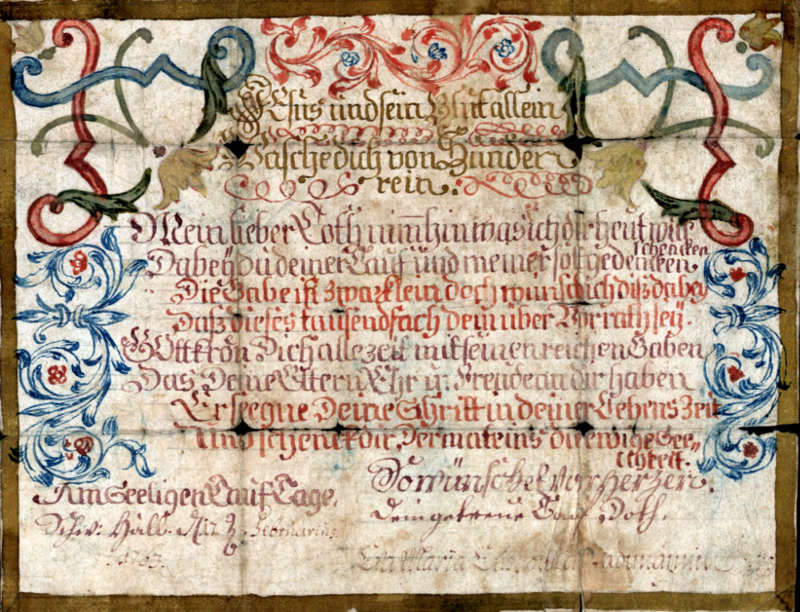 JEsus und sein Blut allein
Wasche dich von Sünden
rein.
Mein lieber Doth nim̅ hin was ich dir heut will
schencken
Dabeÿ Du deiner Tauf und meiner solt gedencken
Die Gabe ist zwar klein doch wünsch ich diß dabeÿ
Daß dieses tausendfach dein über Vorrath seÿ.
GOtt krön Dich allezeit mit seinen reichen Gaben
Das Deine Eltern Ehr u. Freude an dir haben
Er seegne Deine Schritt in deiner Lebens Zeit
Und schenck dir Dermaleins die ewige Ger-
echtkeit.
Am Seeligen Tauf Tage.
Schw. Hall. 
So wünschet von Herzen
Dein getreue Doth.
Eva Maria